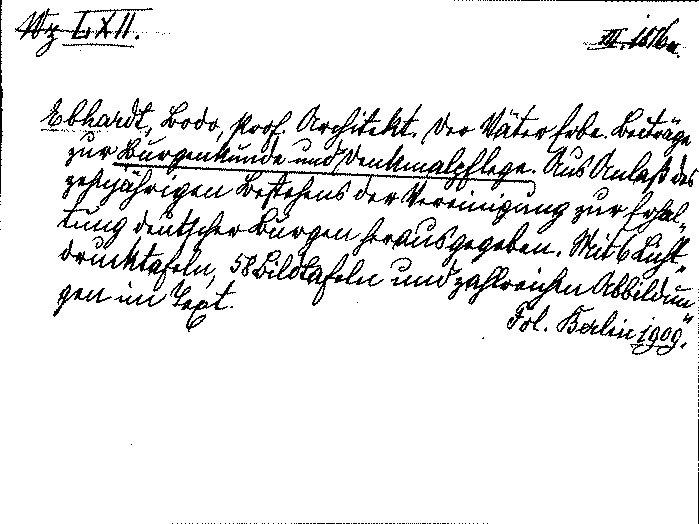 Wz LXII.
III. 1876a.
Ebhardt, Bodo, Prof. Architekt. Der Väter Erbe. Beiträge
zur Burgenkunde und Denkmalpflege. Aus Anlaß des
zehnjährigen Bestehens der Vereinigung zur Erhal-
tung deutscher Burgen herausgegeben. Mit 6 Licht-
drucktafeln, 58 Bildtafeln und zahlreichen Abbildun-
gen im Text.
Fol. Berlin 1909.